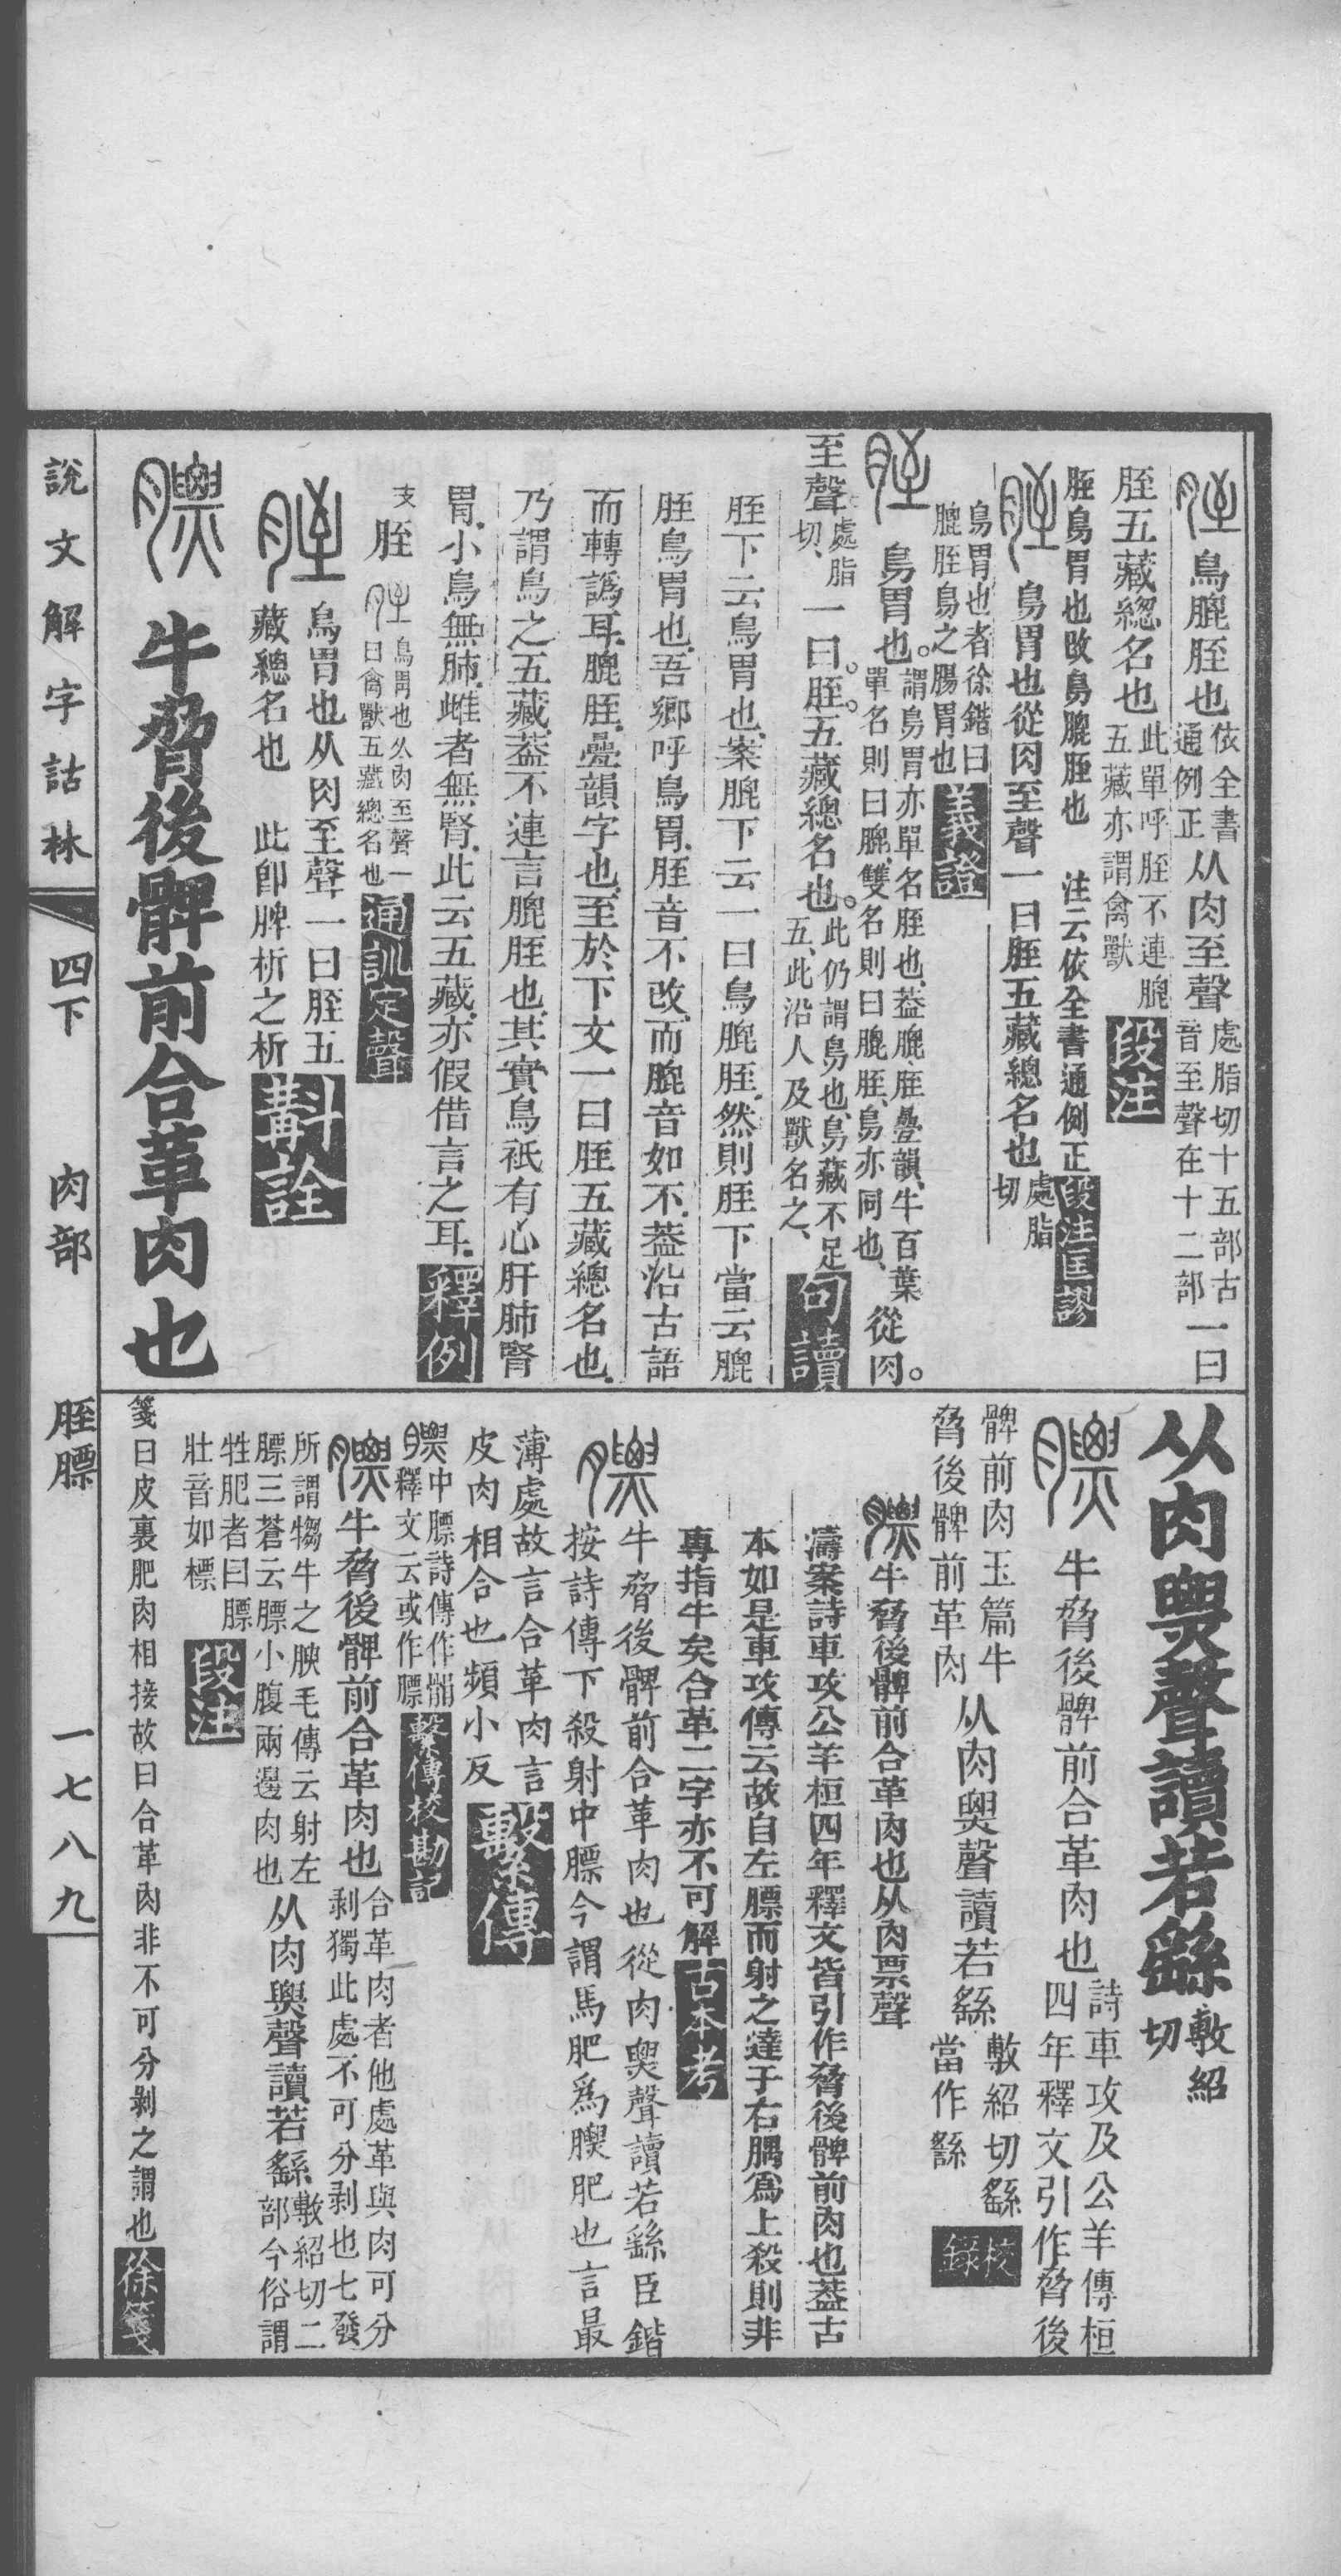 鳥膍胵也依全書通例正从肉至聲處脂切十五部古音至聲在十二部一曰
胵五藏總名也此單呼胵不連膍五藏亦謂禽獸段注
胵鳥胃也改鳥膍胵也 注云依全書通例正段注匡謬
鳥胃也從肉至聲一曰胵五藏總名也處脂切
鳥胃也者徐鍇曰膍胵鳥之腸胃也義證
鳥胃也。謂鳥胃亦單名胵也、葢膍胵疊韻、牛百葉單名則曰膍、雙名則曰膍胵、鳥亦同也、從肉。
至聲處脂切、一曰。胵。五藏總名也。此仍謂鳥也、鳥藏不足五、此沿人及獸名之、句讀
胵下云鳥胃也、案膍下云一曰鳥膍胵、然則胵下當云膍
胵鳥胃也、吾鄉呼鳥胃、胵音不改、而膍音如不、葢沿古語
而轉譌耳、膍胵、疊韻字也、至於下文一曰胵五藏總名也、
乃謂鳥之五藏、葢不連言膍胵也、其實鳥祇有心肝肺腎
胃、小鳥無肺、雌者無腎、此云五藏、亦假借言之耳、釋例
支 胵 鳥胃也从肉至聲一曰禽獸五藏總名也通訓定聲
鳥胃也从肉至聲一曰胵五藏總名也 此卽脾析之析斠詮
牛脅後髀前合革肉也
从肉𤐫聲讀若繇敷紹切
牛脅後髀前合革肉也詩車攻及公羊傳桓四年釋文引作脅後
髀前肉玉篇牛脅後髀前革肉从肉𤐫聲讀若繇敷紹切繇當作𦃟校錄
牛脅後髀前合革肉也从肉票聲
濤案詩車攻公羊桓四年釋文皆引作脅後髀前肉也葢古
本如是車攻傳云故自左膘而射之達于右腢爲上殺則非
專指牛矣合革二字亦不可解古本考
牛脅後髀前合革肉也從肉𤐫聲讀若繇臣鍇
按詩傳下殺射中膘今謂馬肥爲膘肥也言最
薄處故言合革肉言
皮肉相合也頻小反繫傳
中膘詩傳作䯚釋文云或作膘繫傳校勘記
牛脅後髀前合革肉也合革肉者他處革與肉可分剥獨此處不可分剥也七發
所謂犓牛之腴毛傳云射左膘三蒼云膘小腹兩邊肉也从肉𤐫聲讀若繇敷紹切二部今俗謂
牲肥者曰膘壯音如標段注
箋曰皮裏肥肉相接故曰合革肉非不可分剥之謂也徐箋
說文解字詁林 四下 肉部 胵膘 一七八九